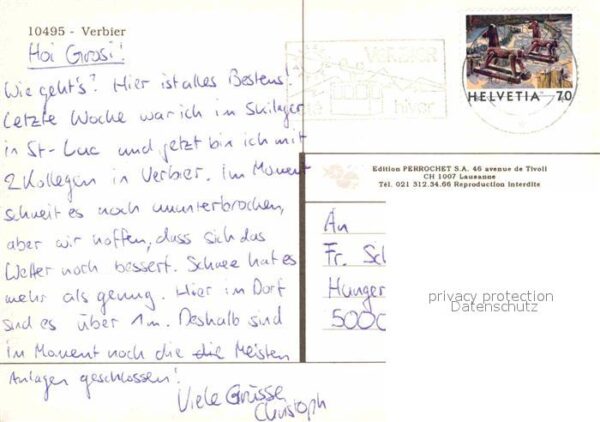 10495 - Verbier
Hoi Grosi!
Wie geht's? Hier ist alles Bestens!
Letzte Woche war ich im Skilager
in St-Luc und jetzt bin ich mit
2 Kollegen in Verbier. Im Moment
schneit es noch ununterbrochen,
aber wir hoffen, dass sich das
Wetter noch bessert. Schnee hat es
mehr als genug. Hier im Dorf
sind es über 1m. Deshalb sind
im Moment noch die die Meisten
Anlagen geschlossen!
Viele Grüsse
Christoph
VERBIER
hiver
HELVETIA 70
Edition PERROCHET S.A. 46 avenue de Tivoli
CH 1007 Lausanne
Tél. 021 312.34.66 Reproduction interdite
An
Fr. Sch
Hunger
5000
privacy protection
Datenschutz